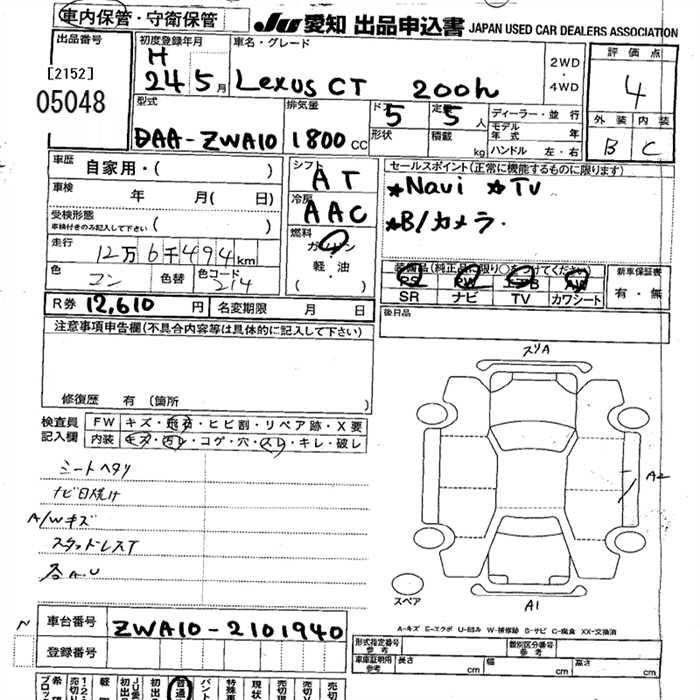 車内保管・守衛保管
JU 愛知 出品申込書 JAPAN USED CAR DEALERS ASSOCIATION
出品番号
[2152]
05048
初度登録年月
H 24 5月
車名・グレード
Lexus CT 200h
2WD
・
4WD
評価点
4
外装 内装
B C
型式
DAA-ZWA10
排気量
1800 CC
ドア
5
定員
5人
形状
積載
kg
ディーラー・並行
モデル年式 年
ハンドル 左・右
車歴
自家用・( )
車検
年 月( 日)
受検形態
車検付きのみ記入して下さい
( )
走行
12万6千494km
色
コン
色替
色コード
214
シフト
AT
冷房
AAC
燃料
ガソリン
軽・油
( )
セールスポイント(正常に機能するものに限ります)
★Navi ★TV
★B/カメラ.
装備品(純正品に限り○をつけてください)
PS PW AW
SR ナビ TV カワシート
新車保証書
有・無
後日品
R券 12,610 円
名変期限 月 日
注意事項申告欄(不具合内容等は具体的に記入して下さい)
修復歴 有 (箇所 )
検査員
記入欄
FW キズ・飛石・ヒビ割・リペア跡・X要
内装 キズ・汚レ・コゲ・穴・スレ・キレ・破レ
シートヘタリ
ナビ日焼け
A/Wキズ
スタッドレスT
各A.U
スリA
A2
A1
スペア
A-キズ E-エクボ U-凹み W-補修跡 B-サビ C-腐食 XX-交換済
N
車台番号
ZWA10-2101940
登録番号
形式指定番号
参考
類別区分番号
参考
車庫証明用
参考
長さ cm 幅 cm 高さ cm
普通